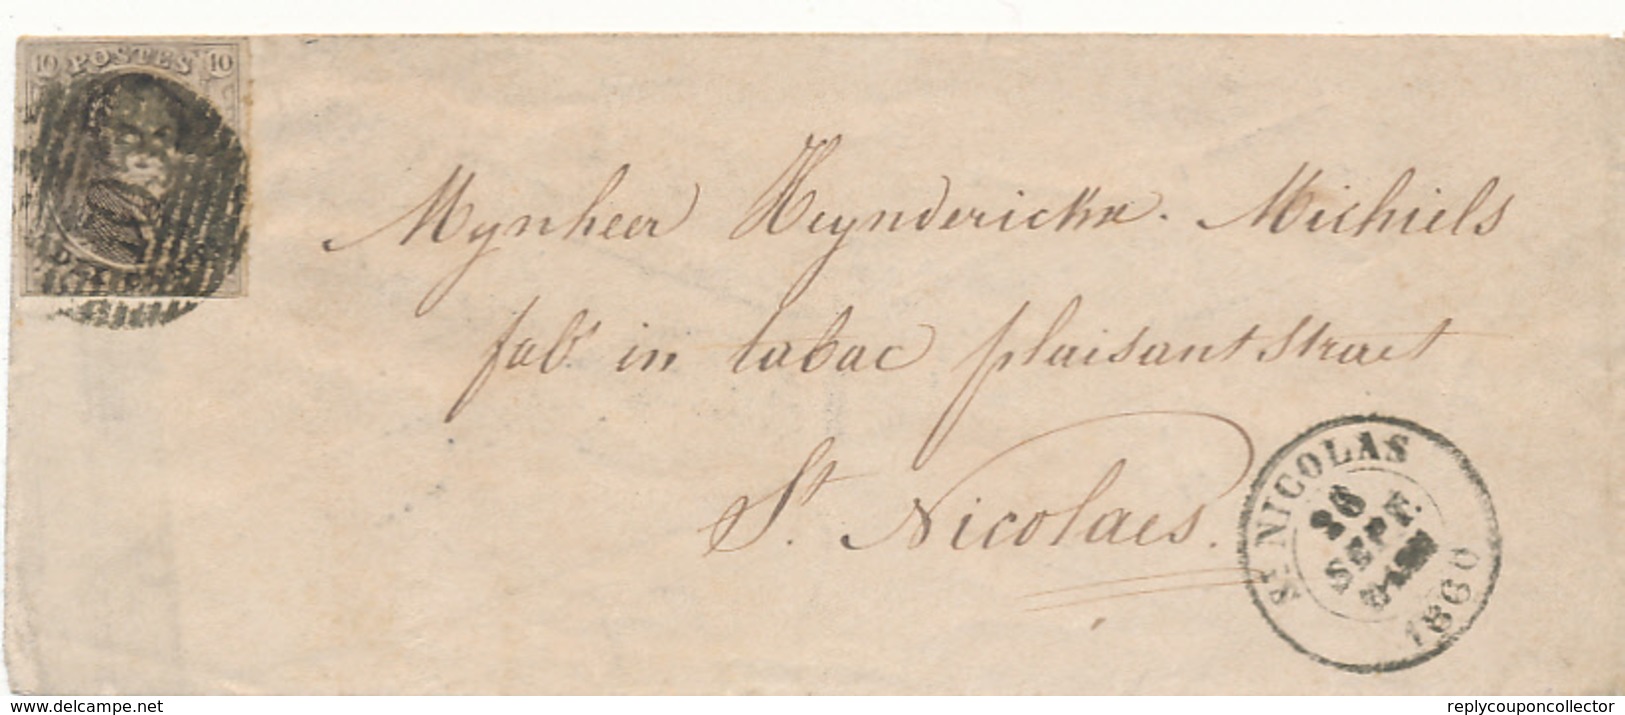 10 POSTES 10
Mynheer Heynderickx. Michiels
fabt in tabac plaisantstraet
St. Nicolaes.
ST. NICOLAS
26
SEPT.
1860
www.delcampe.net
replycouponcollector